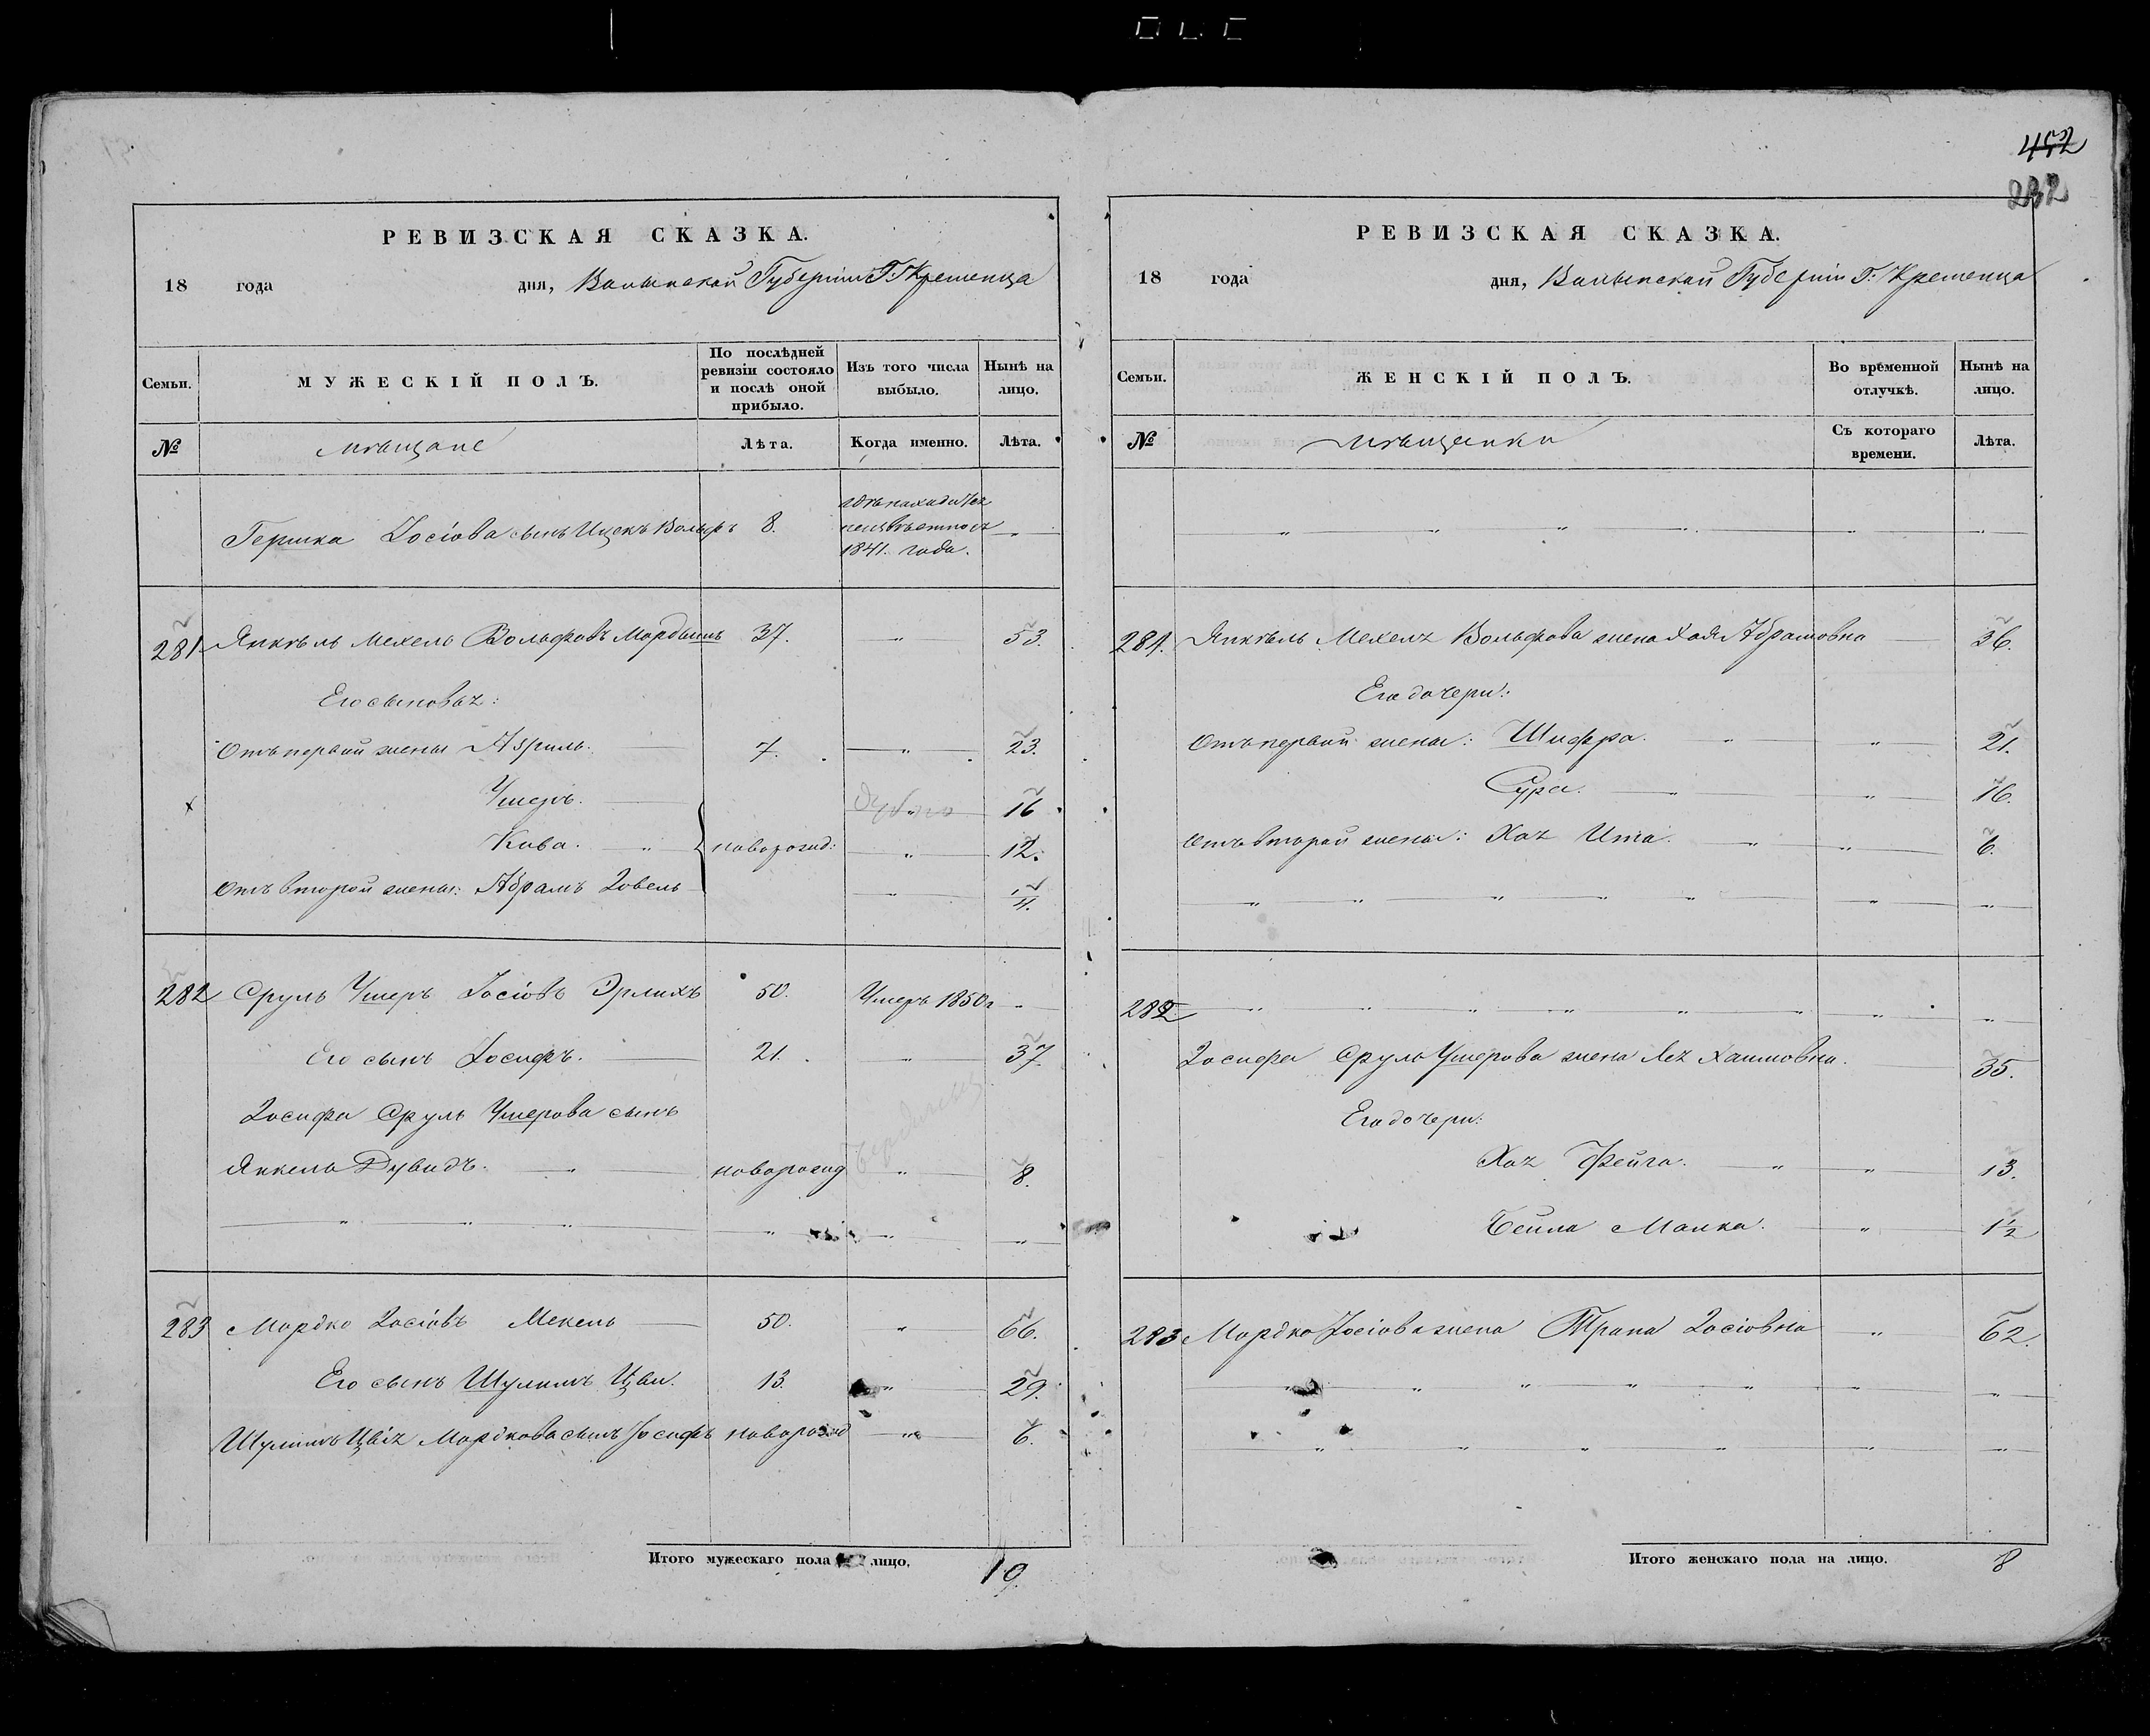 452
232
РЕВИЗСКАЯ СКАЗКА.
18 года дня, Волынской Губерніи Г: Кременца
Семьи. МУЖЕСКІЙ ПОЛЪ. По послѣдней ревизіи состояло и послѣ оной прибыло. Изъ того числа выбыло. Нынѣ на лицо.
№ мѣщане Лѣта. Когда именно. Лѣта.
Гершка Іосіова сынъ Ицекъ Вольфъ 8. гдѣ находится неизвѣстно съ 1841. года. "
281 Янкѣль Мехель Вольфовъ Мордышъ 37. " 53.
Его сыновья:
Отъ первой жены Азриль. 7. " 23.
Ушеръ. Дубно " 16
Кива. " новорожд: " 12.
Отъ второй жены: Абрамъ Іовель " 11.
282 Сруль Ушеръ Іосіовъ Эрлихъ 50. Умеръ 1850 г "
Его сынъ Іосифъ. 21. " 37.
Іосифа Сруль Ушерова сынъ
Янкель Дувидъ. " новорожд " 8.
" " " " " "
283 Мордко Іосіовъ Мекель 50. " 66.
Его сынъ Шулимъ Цви. 13. " 29.
Шулимъ Цвія Мордкова сынъ Іосифъ новорожд " 6.
Итого мужескаго пола на лицо. 10.
РЕВИЗСКАЯ СКАЗКА.
18 года дня, Волынской Губерніи Г: Кременца
Семьи. ЖЕНСКІЙ ПОЛЪ. Во временной отлучкѣ. Нынѣ на лицо.
№ мѣщанки Съ котораго времени. Лѣта.
" " " " "
281. Янкѣль Мехеля Вольфова жена Хая Абрамовна 36.
Его дочери:
Отъ первой жены: Шифра. " " 21.
Сура. " " 16.
Отъ второй жены: Хая Ита. " " 6.
" " " " " " "
282 " " " " " " " "
Іосифа Сруль Ушерова жена Лея Хаимовна. 35.
Его дочери:
Хая Фейга. " " 13.
Бейла Малка. " 1 1/2
283 Мордко Іосіова жена Трана Іосіовна " 62.
" " " " " " "
" " " " " "
Итого женскаго пола на лицо. 8